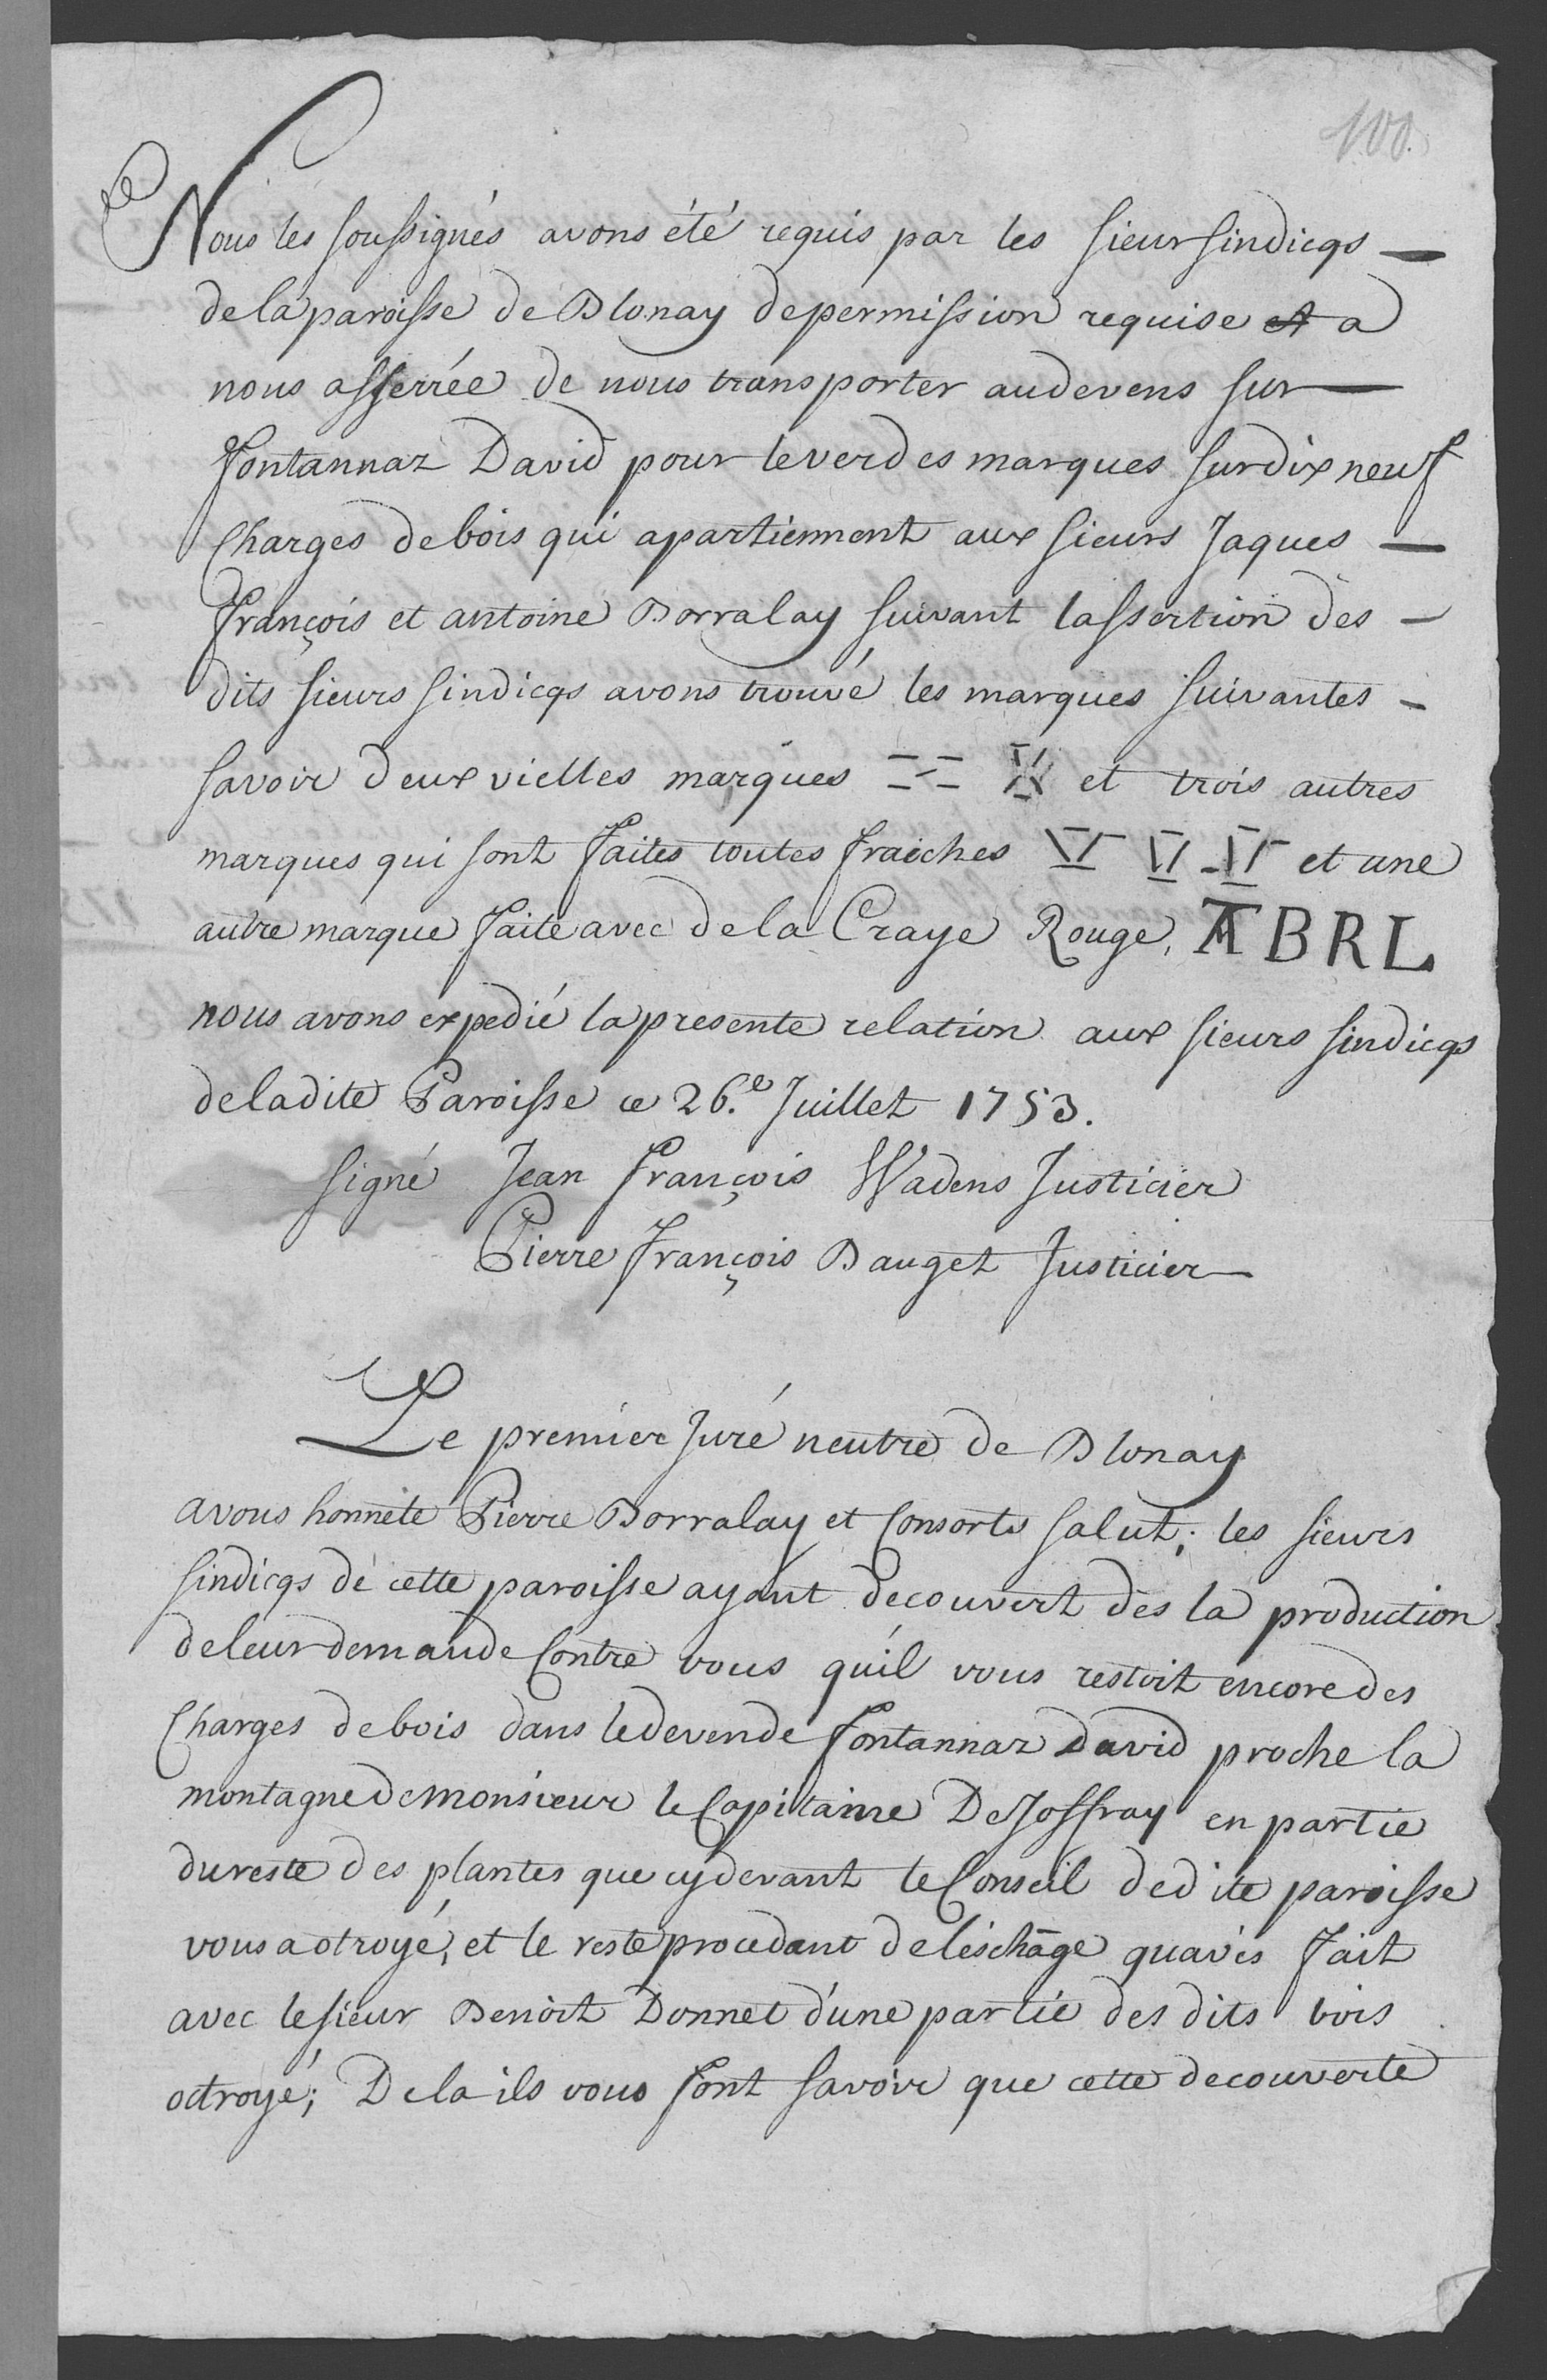 100.
Nous les soussignés avons été requis par les sieur sindicqs
de la paroisse de Blonay de permission requise a
nous asserrée de nous transporter au devens sur
Fontannaz David pour lever des marques sur dix neuf
Charges de bois qui apartiennent aux sieurs Jaques
François et antoine Borralay suivant lassertion des
dits sieurs sindicqs avons trouvé les marques suivantes
savoir deux vielles marques et trois autres
marques qui sont faites toutes fraiches VI VI VI et une
autre marque faite avec de la Craye Rouge, ABRL
nous avons expedié la presente relation aux sieurs sindicqs
de la dite Paroisse ce 26.e Juillet 1753.
signé Jean François Wadens Justicier
Pierre François Dauget Justicier
Le premier Juré neutre de Blonay
a vous honnete Pierre Borralay et Consorts salut; les sieurs
sindicqs de cette paroisse ayant decouvert dès la production
de leur demande Contre vous quil vous restoit encore des
Charges de bois dans le deven de Fontannaz David proche la
montagne de monsieur le Capitaine De Joffray en partie
du reste des plantes que cy devant le Conseil de dite paroisse
vous a otroyé, et le reste procedant de léschâge quavés fait
avec le sieur Benoit Bonnet d'une partie des dits bois
octroyé; De la ils vous font savoir que cette decouverte